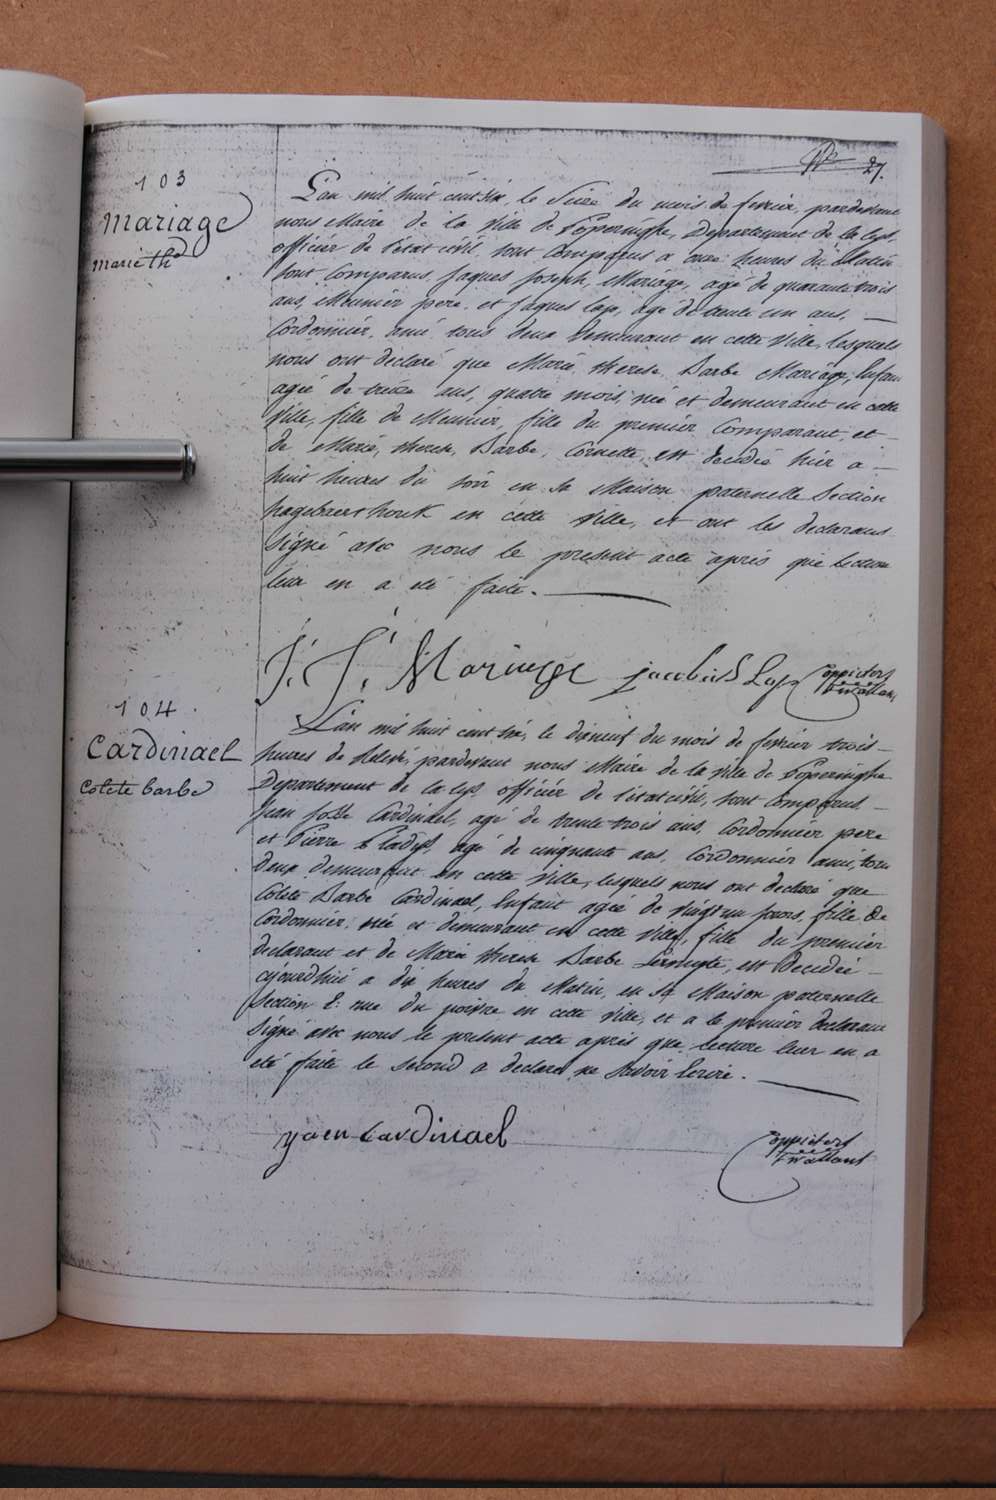 27.
103
Mariage
marie th
L'an mil huit cent six, le Seize du mois de fevrier, pardevant
nous Maire de la Ville de Poperinghe, Departement de la Lys,
officier de l'état civil, sont Comparus a onze heures du Matin
sont Comparus, Jaques Joseph, Mariage, agé de quarante trois
ans, Meunier pere, et Jaques Lap, agé de trente un ans,
Cordonnier, ami tous deux Demeurant en cette Ville, lesquels
nous ont declaré que Marie, therese, Barbe Mariage, Enfan
agée de treize ans, quatre mois, née et demeurant en cette
Ville, fille de Meunier, fille du premier Comparant, et
de Marie, therese, Barbe, Cornette, est decedée hier a
huit heures du soir en sa Maison paternelle Section
hagebaerthouk en cette Ville, et ont les declarans
signé avec nous le present acte après que lecture
leur en a été faite.
J: J: Mariage jacobus Lap
104
Cardinael
Colete barbe
L'an mil huit cent six, le dixneuf du mois de fevrier trois
heures de Relevé, pardevant nous Maire de la Ville de Poperinghe
Departement de la Lys officier de l'état civil, sont Comparus
Jean Cardinael, agé de trente trois ans, Cordonnier pere
et Pierre agé de cinquante ans, Cordonnier ami, tous
deux demeurant en cette Ville, lesquels nous ont declaré que
Colete Barbe Cardinael, Enfant agée de vingt un jours, fille de
Cordonnier, née et demeurant en cette Ville, fille du premier
declarant et de Marie therese Barbe est decedée
cejourdhui a dix heures du Matin, en sa Maison paternelle
Section E: rue du poivre en cette Ville, et a le premier declarant
signé avec nous le present acte après que lecture leur en a
été faite le second a declaré ne Savoir Ecrire.
yoen Cardinael